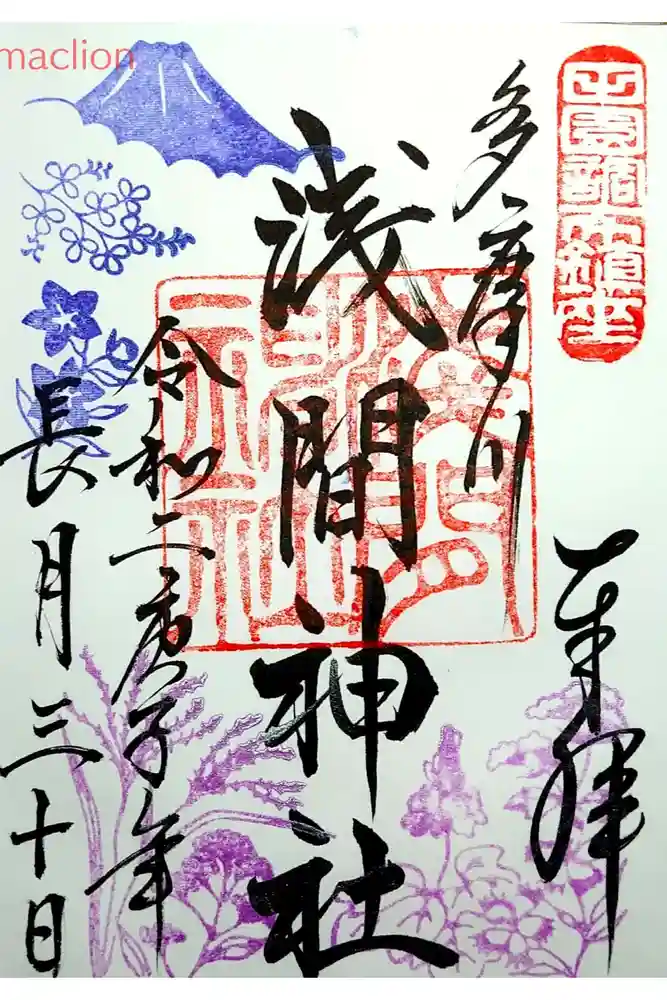 maclion
田園調布鎮座
多摩川
奉拝
浅間神社
浅間神社
令和二庚子年
長月三十日